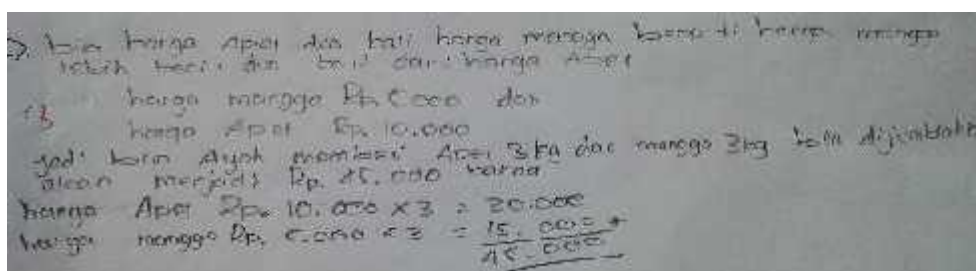 harga Apel dua kali harga mangga harga mangga
lebih kecil dua kali dari harga Apel
harga mangga Rp. 5000 dan
harga Apel Rp. 10.000
jadi Ayah membeli Apel 3 kg dan mangga 3 kg bila dijumlahkan
akan menjadi Rp. 45.000 karna
harga Apel Rp. 10.000 x 3 = 30.000
harga mangga Rp. 5.000 x 3 = 15.000 +
45.000